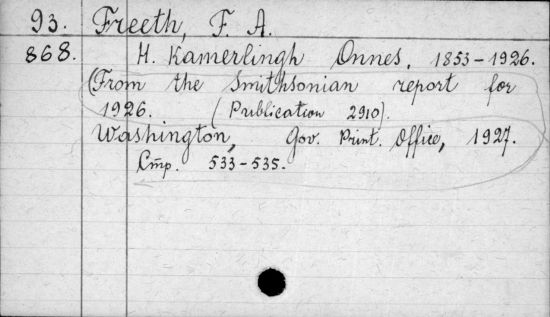 93. Freeth, F. A.
868. H. Kamerlingh Onnes, 1853-1926.
(From the Smithsonian report for
1926. (Publication 2910).
Washington, Gov. Print. Office, 1927.
Стр. 533-535.